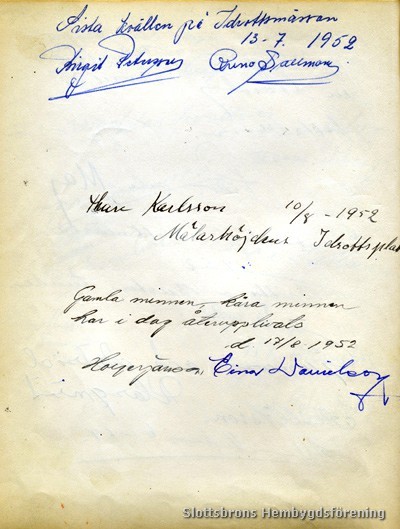 Sista kvällen på Idrottsmässan
13-7. 1952
Birgit Petersson Bruno Dallmon
Thure Karlsson 10/8 - 1952
Mälarhöjdens Idrottsplats
Gamla minnen, kära minnen
har i dag återupplivats
d 17/8 1952
Holger Jansson Einar Danielson
Slottsbrons Hembygdsförening